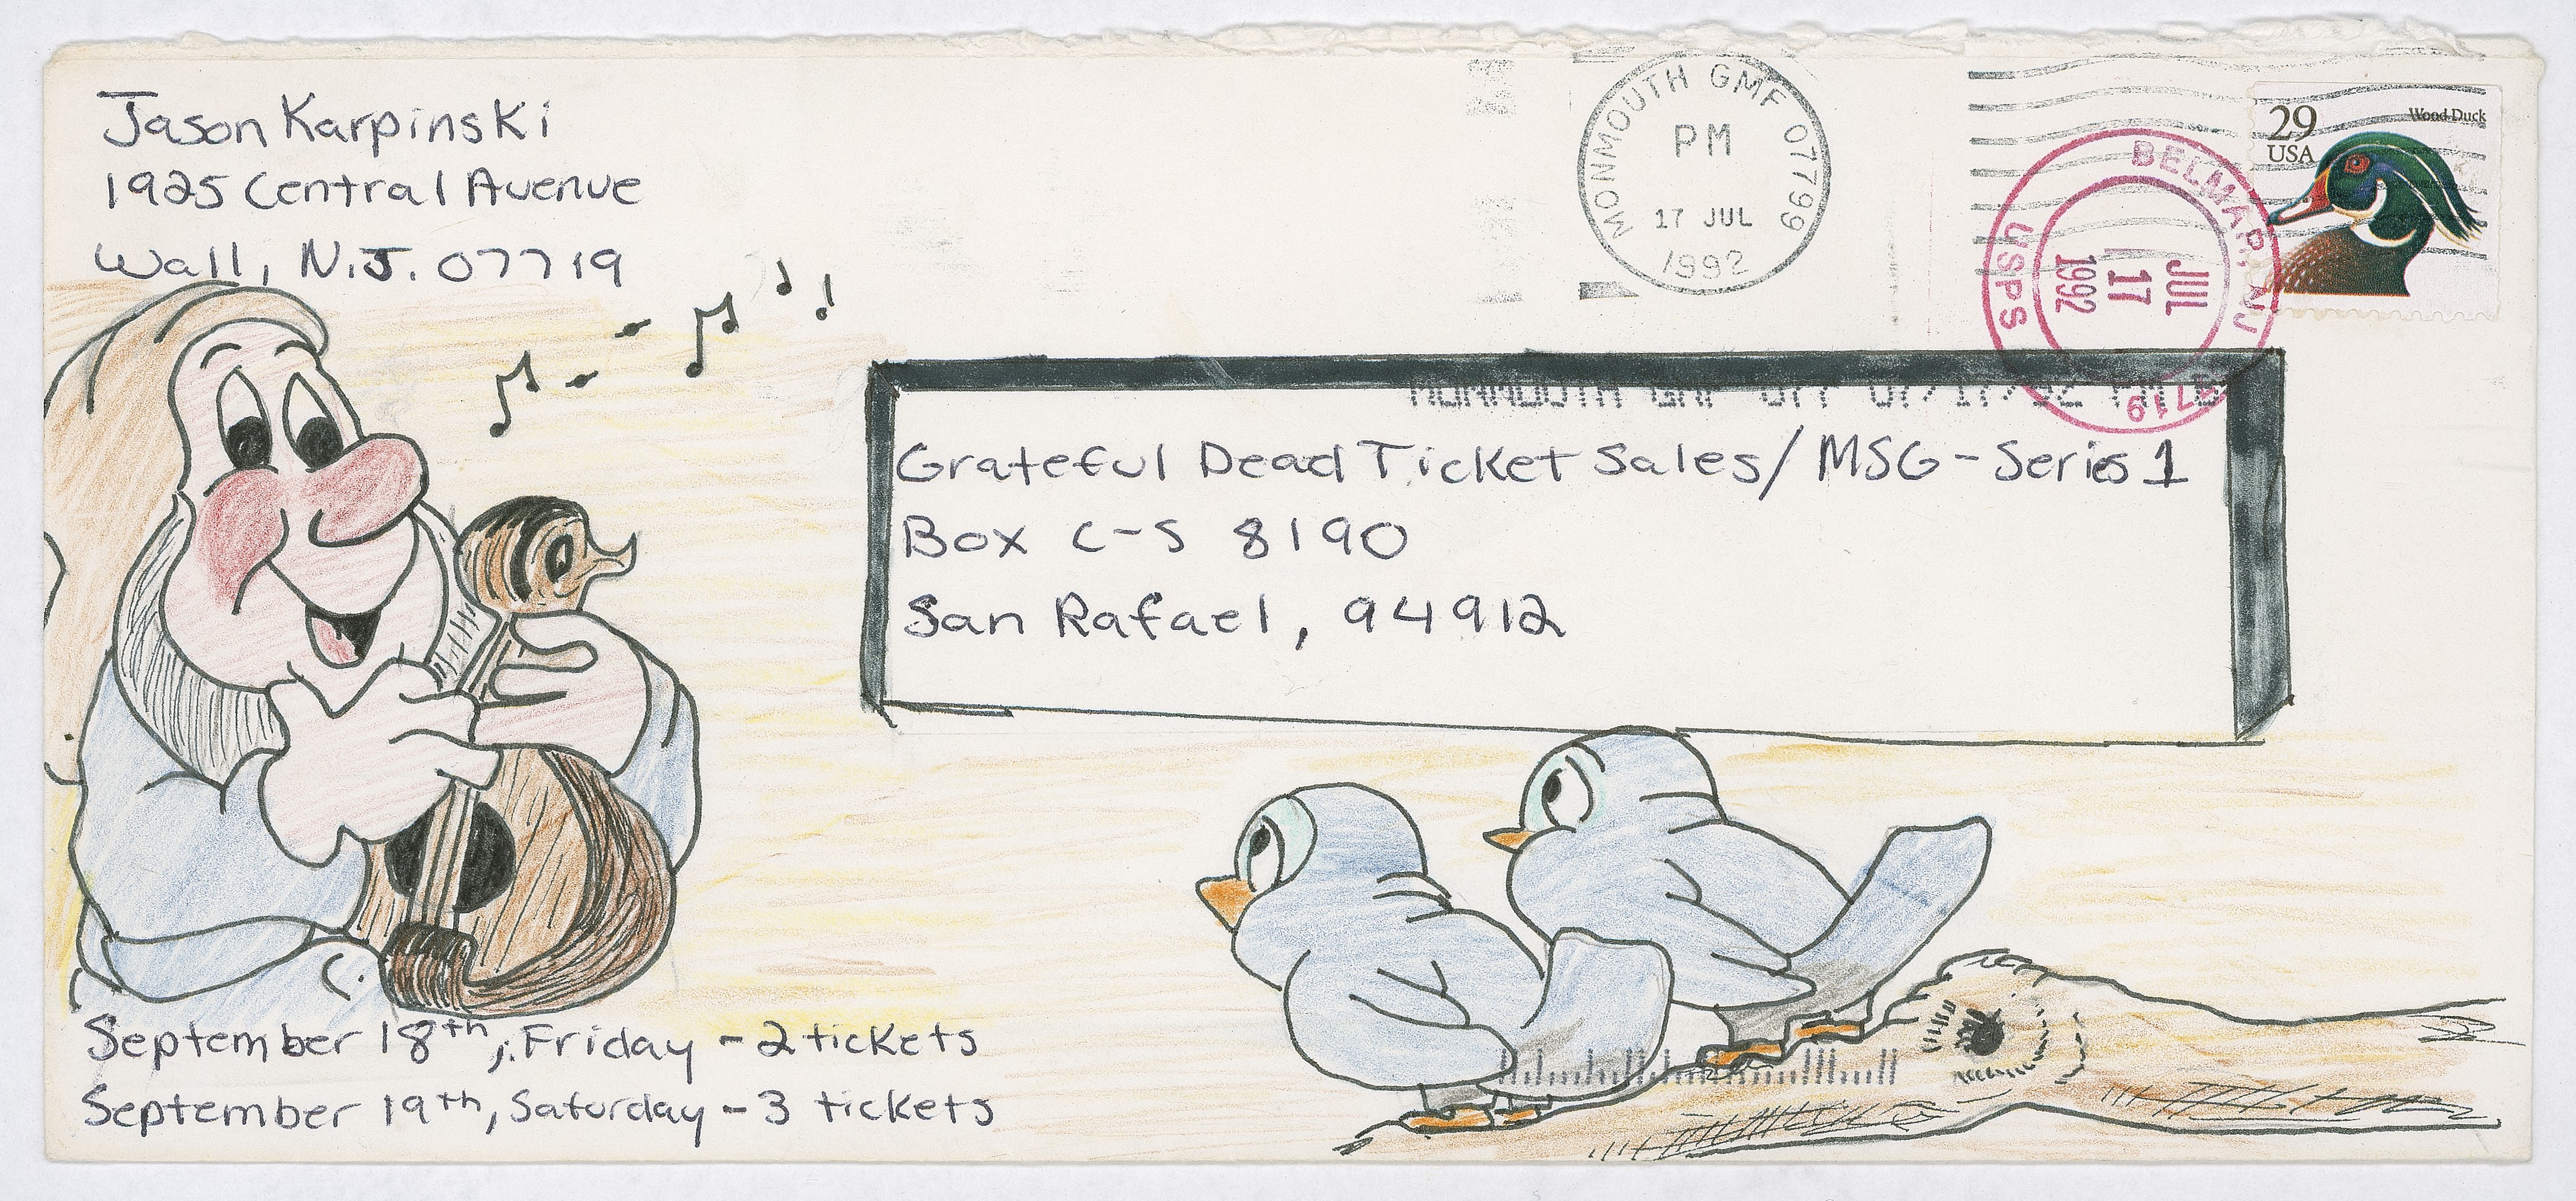 Jason Karpinski
1925 Central Avenue
Wall, N.J. 07719
MONMOUTH GMF 07799
PM
17 JUL
1992
BELMAR, NJ
JUL
17
1992
USPS
07719
29
USA
Wood Duck
MONMOUTH GMF 077 07/17/92 PM
Grateful Dead Ticket Sales/MSG-Series 1
Box C-S 8190
San Rafael, 94912
September 18th, Friday - 2 tickets
September 19th, Saturday - 3 tickets